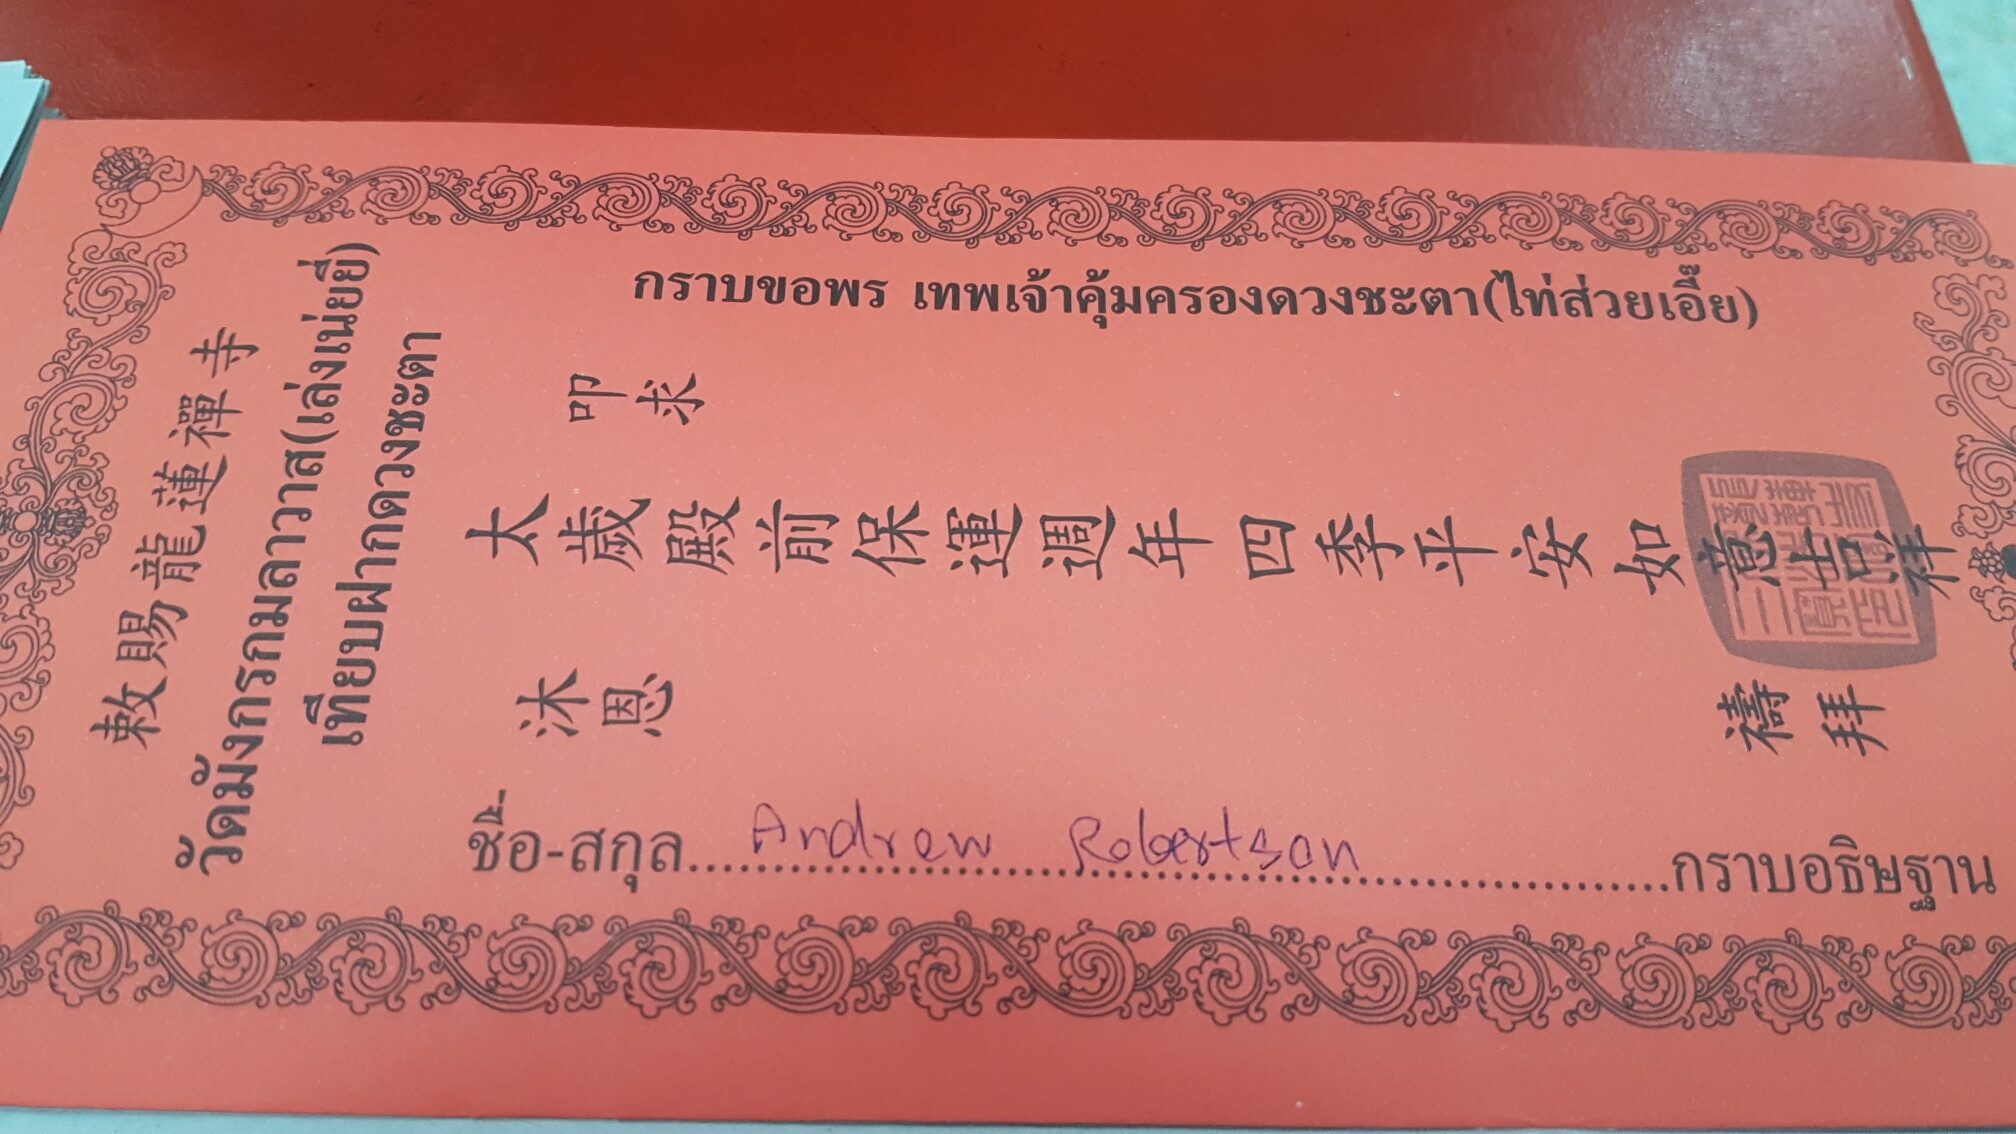 敕賜龍蓮禪寺
วัดมังกรกมลาวาส(เล่งเน่ยยี่)
เทียบฝากดวงชะตา
กราบขอพร เทพเจ้าคุ้มครองดวงชะตา(ไท่ส่วยเอี๊ย)
叩求
太歲殿前保運週年四季平安如意吉祥
沐恩
禱拜
ชื่อ-สกุล.....Andrew Robertson.....กราบอธิษฐาน